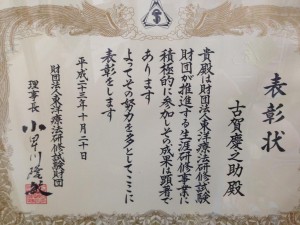 表彰状
古賀慶之助殿
貴殿は財団法人東洋療法研修試験
財団が推進する生涯研修事業に
積極的に参加しその成果は顕著で
あります
よってその努力を多としてここに
表彰をします
平成二十三年十月二十日
財団法人東洋療法研修試験財団
理事長 小川